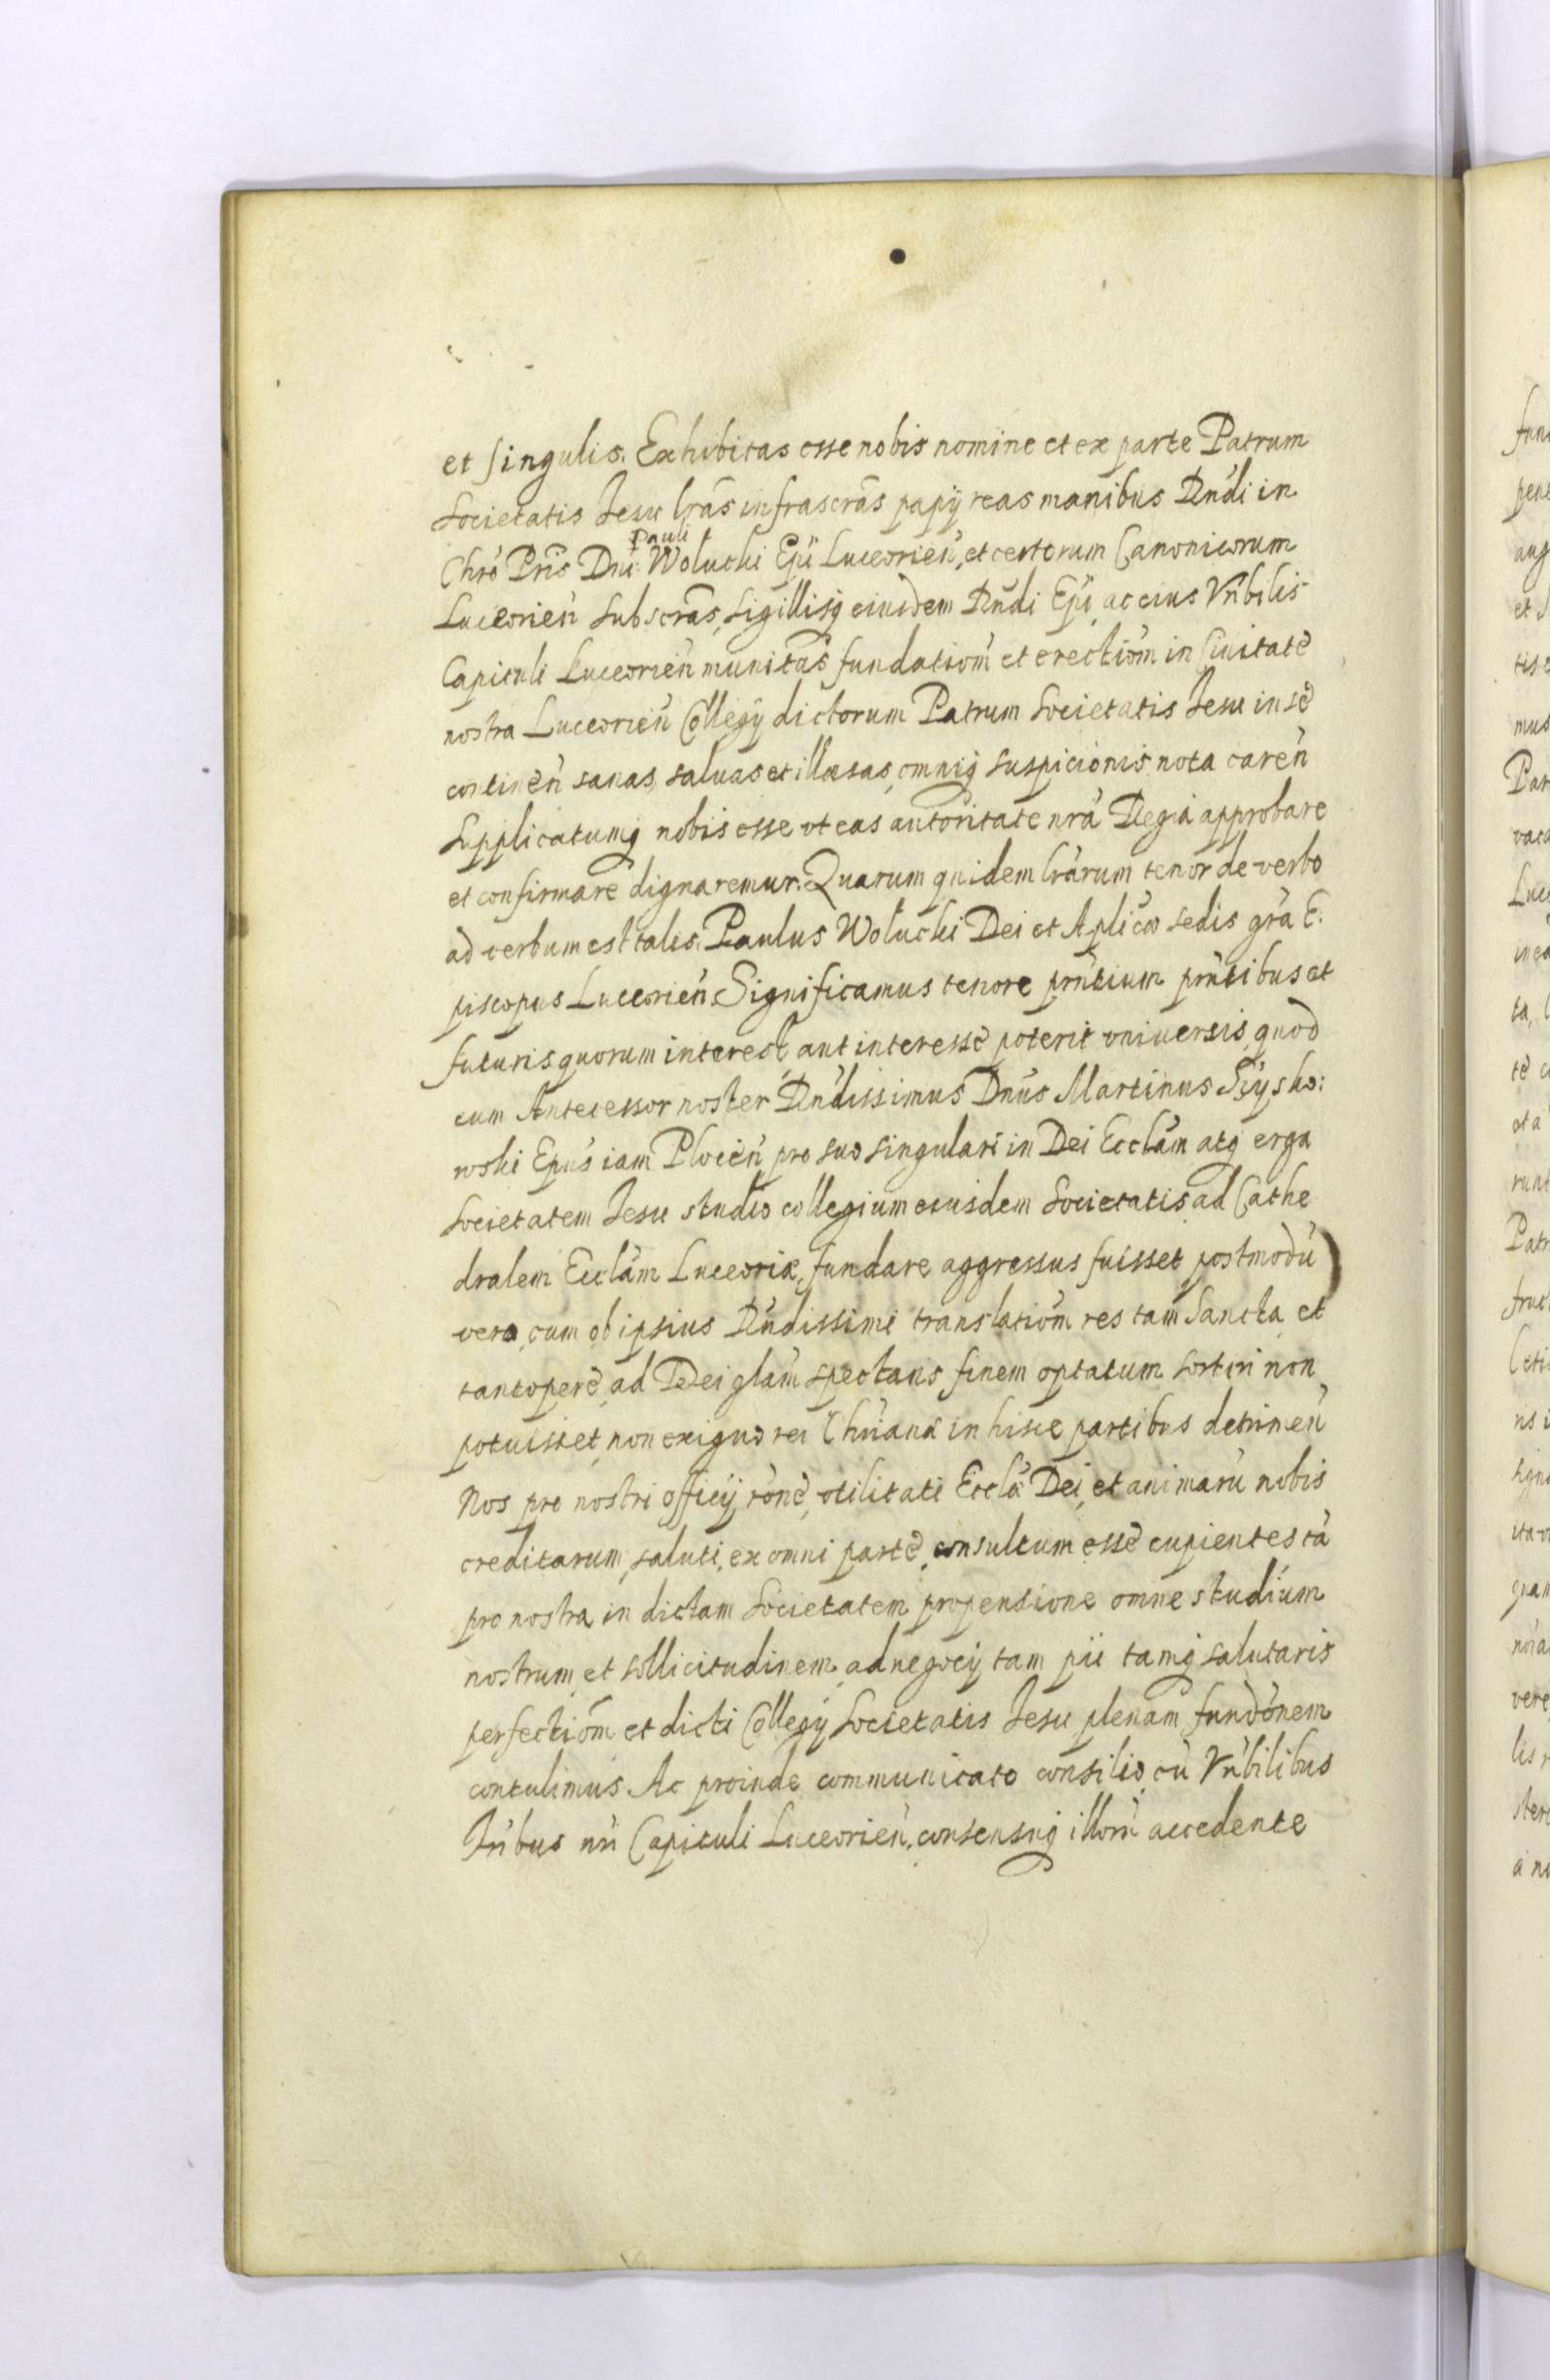 et singulis. Exhibitas esse nobis nomine et ex parte Patrum
Societatis Jesu lrãs infrascrãs papÿreas manibus Rndi in
Pauli
Chrõ Pris Dni Wolucki Epi Luceorien, et certorum Canonicorum
Luceorien subscrãs, sigillisq eiusdem Rndi Epi, ac eius Vnbilis
Capituli Luceorien munitas fundationem et erectiõm in Ciuitate
nostra Luceorien Collegÿ dictorum Patrum Societatis Jesu in se
continen sanas, saluas et illæsas, omniq suspicionis nota caren
Supplicatumq nobis esse vt eas autoritate nrã Regia approbare
et confirmare dignaremur. Quarum quidem lrãrum tenor de verbo
ad verbum est talis. Paulus Wolucki Dei et Aplicæ sedis grã E:
piscopus Luceorien Significamus tenore prntium prntibus et
futuris quorum interest, aut interesse poterit vniuersis, quod
cum Antecessor noster Rndissimus Dnus Martinus Szÿsko:
wski Epus iam Plocen pro suo singulari in Dei Ecclãm atq erga
Societatem Jesu studio collegium eiusdem Societatis ad Cathe
dralem Ecclãm Luceoriæ, fundare aggressus fuisset postmodũ
vero, cum ob ipsius Rndissimi translatiõm res tam Sancta, et
tantopere, ad Dei glãm spectans finem optatum sortiri non
potuisset, non exiguo rei Chrianæ in hisce partibus detrimen
Nos pro nostri officÿ rone, vtilitati Ecclæ Dei, et animarũ nobis
creditarum, saluti, ex omni parte, consultum esse cupientes tã
pro nostra in dictam Societatem propensione omne studium
nostrum, et sollicitudinem, ad negocÿ tam pii tamq salutaris
perfectiõm et dicti Collegÿ Societatis Jesu plenam fundonem
contulimus. Ac proinde communicato consilio, cũ Vnbilibus
Fribus nri Capituli Luceorien, consensuq illorũ accedente